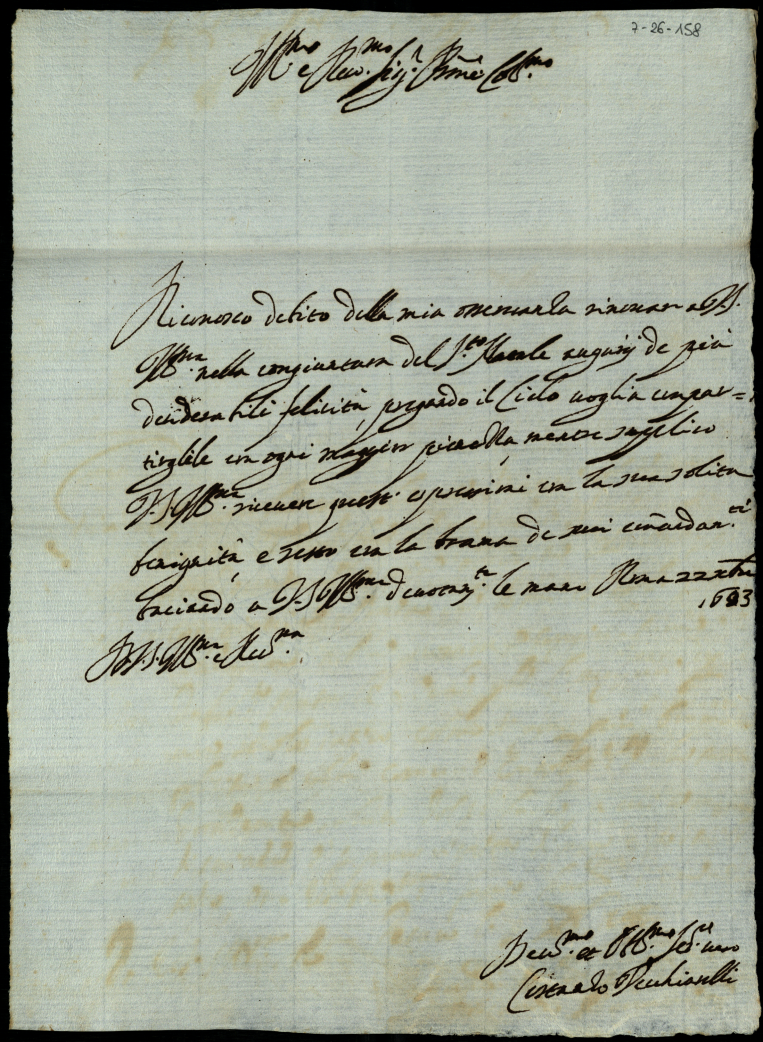 7-26-158
Ill.mo e Rev.mo Sig.r P.rne Col.mo
Riconosco debito della mia osservanza rinovar a V.S.
Ill.ma nella congiuntura del S.to Natale augurij de più
desiderabili felicità pregando il Cielo voglia compar=
tirgliele con ogni maggior pienezza mentre supplico
V.S. Ill.ma ricever queste espressioni con la sua solita
benignità e resto con la brama de suoi com̃andam.ti
baciando a V.S. Ill.ma devotam.te le mani Roma 22 xbre
1683
D. V.S. Ill.ma e Rev.ma
Dev.mo et Obl.mo Ser.re vero
Vecchiarelli